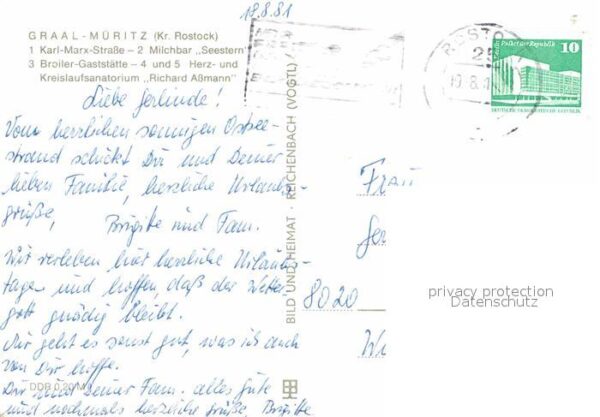 18.8.81
GRAAL-MÜRITZ (Kr. Rostock)
1 Karl-Marx-Straße – 2 Milchbar „Seestern"
3 Broiler-Gaststätte – 4 und 5 Herz- und
Kreislaufsanatorium „Richard Aßmann"
Liebe Gerlinde!
Vom herrlichen sonnigen Ostsee-
strand schickt Dir und Deiner
lieben Familie, herzliche Urlaubs-
grüße,
Brigitte und Fam.
Wir verleben hier herrliche Urlaubs-
tage und hoffen, daß der Wetter
gott gnädig bleibt.
Mir geht es sonst gut, was ich auch
von Dir hoffe.
Dir und Deiner Fam. alles gute
und nochmals herzliche Grüße, Brigitte
DDR 0,20 M
BILD UND HEIMAT · REICHENBACH (VOGTL)
ROSTO
25
Berlin, Palast der Republik
10
DEUTSCHE DEMOKRATISCHE REPUBLIK
Frau
Ger
8020
privacy protection
Datenschutz